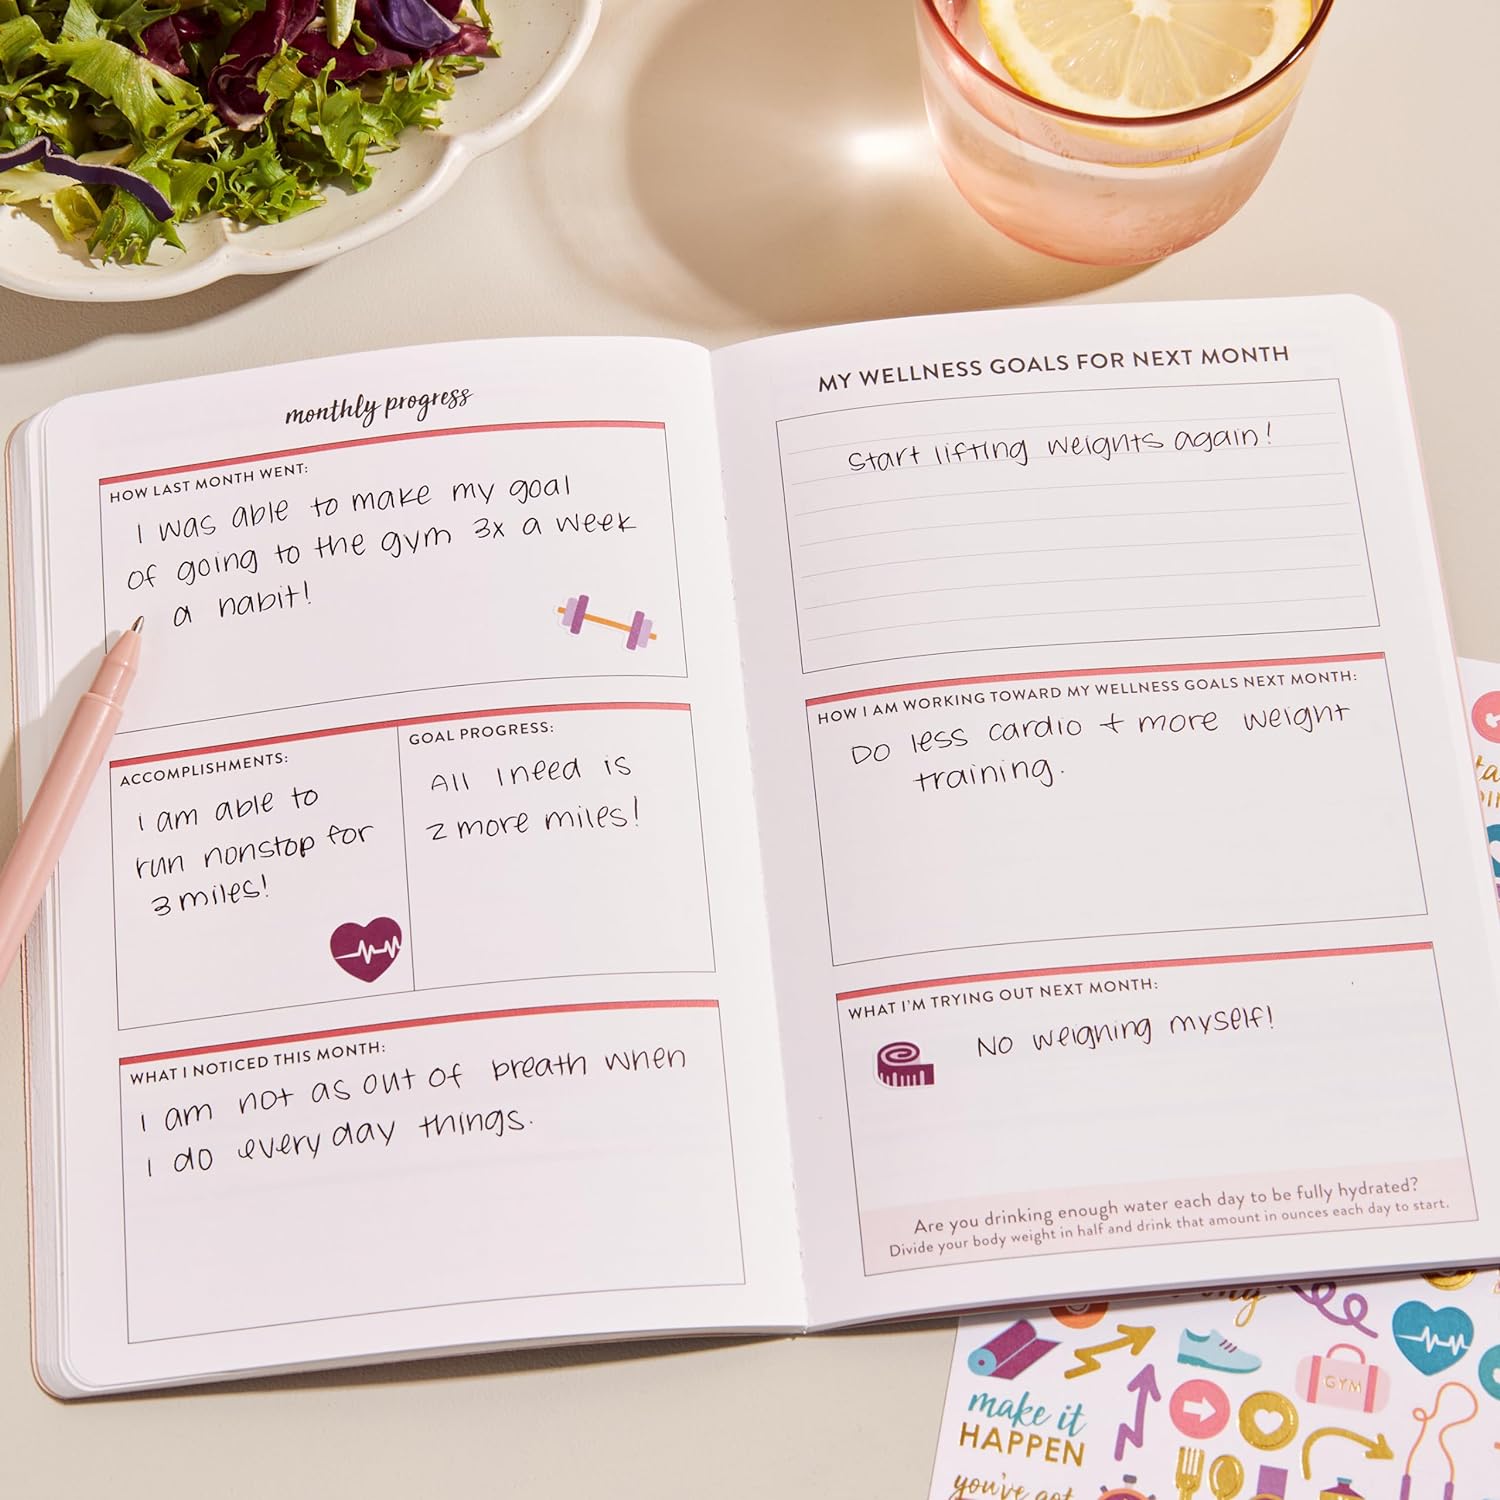 monthly progress
HOW LAST MONTH WENT:
I was able to make my goal
of going to the gym 3x a week
a habit!
ACCOMPLISHMENTS:
I am able to
run nonstop for
3 miles!
GOAL PROGRESS:
All I need is
2 more miles!
WHAT I NOTICED THIS MONTH:
I am not as out of breath when
I do everyday things.
MY WELLNESS GOALS FOR NEXT MONTH
Start lifting weights again!
HOW I AM WORKING TOWARD MY WELLNESS GOALS NEXT MONTH:
Do less cardio + more weight
training.
WHAT I'M TRYING OUT NEXT MONTH:
No weighing myself!
Are you drinking enough water each day to be fully hydrated?
Divide your body weight in half and drink that amount in ounces each day to start.
GYM
make it
HAPPEN
you've got